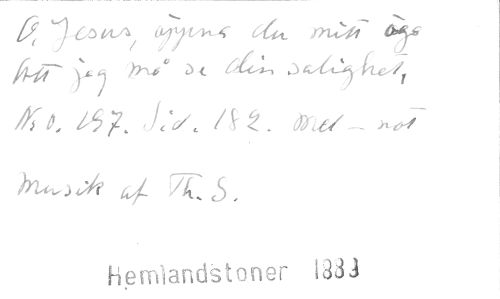 O, Jesus, öppna du mitt öga
Att jag må se din salighet,
No. 157. Sid. 182. Mel-not
Musik af Th. S.
Hemlandstoner 1883